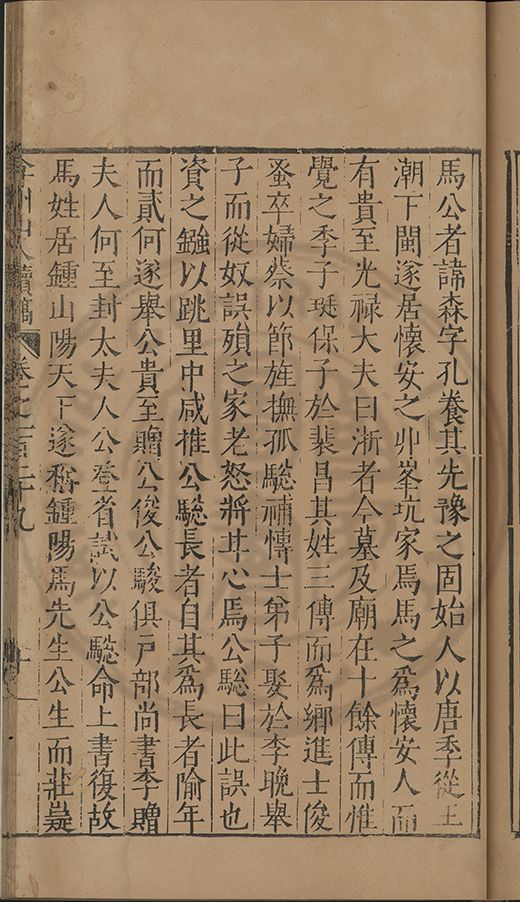 馬公者諱森字孔養其先豫之固始人以唐季從王
潮下閩遂居懷安之丱峯坑家焉馬之爲懷安人而
有貴至光祿大夫曰浙者今墓及廟在十餘傳而惟
覺之季子珽保子於裴昌其姓三傳而爲鄉進士俊
蚤卒婦蔡以節旌撫孤驄補愽士弟子娶於李晚舉
子而從奴誤殞之家老怒將甘心焉公驄曰此誤也
資之鏹以跳里中咸推公驄長者自其爲長者隃年
而貳何遂舉公貴至贈公俊公駿俱戸部尚書李贈
夫人何至封太夫人公登省試以公驄命上書復故
馬姓居鍾山陽天下遂稱鍾陽馬先生公生而莊嶷
弇州山人續稿
卷之一百二十九
十一